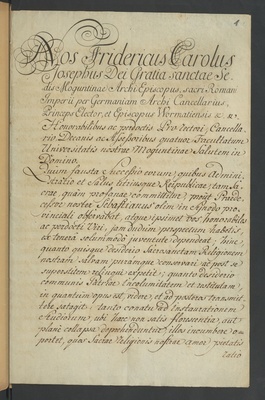 4
Nos Fridericus Carolus
Josephus Dei Gratia sanctae Se-
dis Moguntinae Archi Episcopus, sacri Romani
Imperii per Germaniam Archi Cancellarius,
Princeps Elector, et Episcopus Wormatiensis &c. &c.
Honorabilibus ac perdoctis Pro Rectori, Cancella-
rio, Decanis ac Assessoribus quatuor Facultatum
Universitatis nostrae Moguntinae Salutem in
Domino.
Quum fausta Successio eorum, quibus Admini-
stratio et Salus utriusque Reipublicae, tam Sa-
crae, quam profanae committitur, prout Praede-
cessor noster Sebastianus olim in
vinciali observabat, atque ipsimet vos honorabiles
ac perdocti Viri, jam dudum perspectum habetis,
ex tenera solummodo juventute dependeat; hinc
quanto quisque desiderio Sacrosanctam Religionem
nostram salvam puramque conservari, ac post se
superstitem relinqui expetit; quanto desiderio
communis Patriae Incolumitatem et
in quantum opus est, videre, et ad posteros transmit-
tere satagit: tanto conatu ad Instaurationem
Studiorum, ubi haec non satis florescentia, aut
plane collapsa deprehenduntur, illos incumbere o-
portet, quos Sacrae Religionis nostrae amor, pietatis